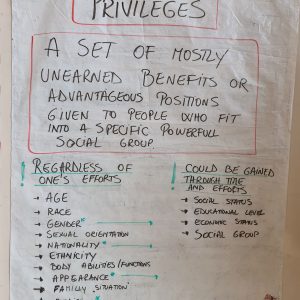 PRIVILEGES
A SET OF MOSTLY
UNEARNED BENEFITS OR
ADVANTAGEOUS POSITIONS
GIVEN TO PEOPLE WHO FIT
INTO A SPECIFIC POWERFULL
SOCIAL GROUP
! REGARDLESS OF
ONE'S EFFORTS
→ AGE
→ RACE
→ GENDER*
→ SEXUAL ORIENTATION
→ NATIONALITY*
→ ETHNICITY
→ BODY ABILITIES/FUNCTIONS
→ APPEARANCE*
→ FAMILY SITUATION
! COULD BE GAINED
THROUGH TIME
AND EFFORTS
→ SOCIAL STATUS
→ EDUCATIONAL LEVEL
→ ECONOMIC STATUS
→ SOCIAL GROUP